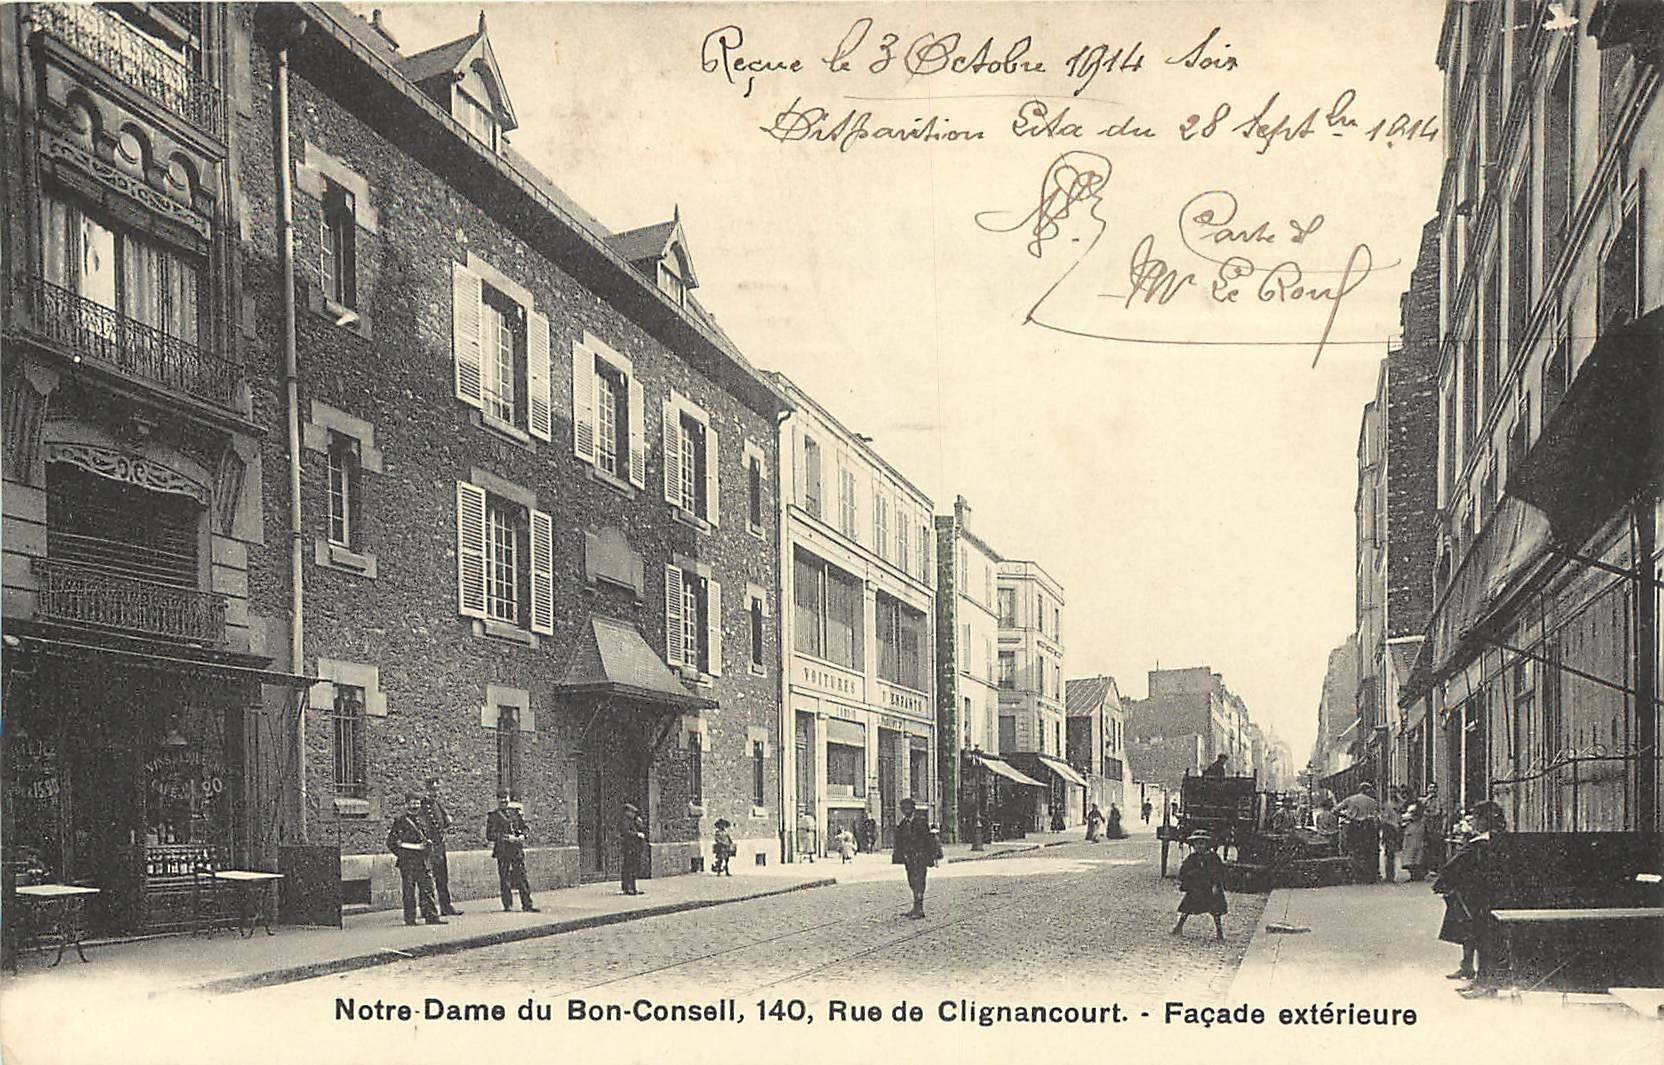 Reçue le 3 Octobre 1914 Soir
Disparition Lita du 28 Septbre 1914
Carte d
Mr Le Rouf
VOITURES D'ENFANTS
VINS
CAFE
Notre-Dame du Bon-Conseil, 140, Rue de Clignancourt. - Façade extérieure